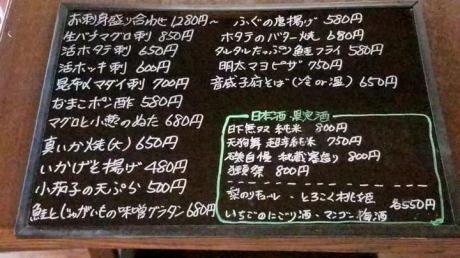 お刺身盛り合わせ 1,280円～
生バチマグロ刺 850円
活ホタテ刺 650円
活ホッキ刺 600円
昆布〆マダイ刺 700円
なまこポン酢 580円
マグロと小葱のぬた 680円
真いか焼(大) 650円
いかげそ揚げ 480円
小茄子の天ぷら 500円
鮭とじゃがいもの味噌グラタン 680円
ふぐの唐揚げ 580円
ホタテのバター焼 680円
タルタルたっぷり鮭フライ 580円
明太マヨピザ 750円
音威子府そば(冷or温) 650円
日本酒・果実酒
日下無双 純米 800円
天狗舞 超辛純米 750円
磯自慢 800円
獺祭 800円
梨のリキュール・とろこく桃姫
いちごのにごり酒・マンゴー梅酒
各550円